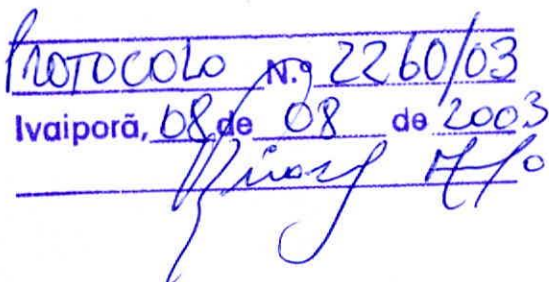 PROTOCOLO N.º 2260/03
Ivaiporã, 08 de 08 de 2003